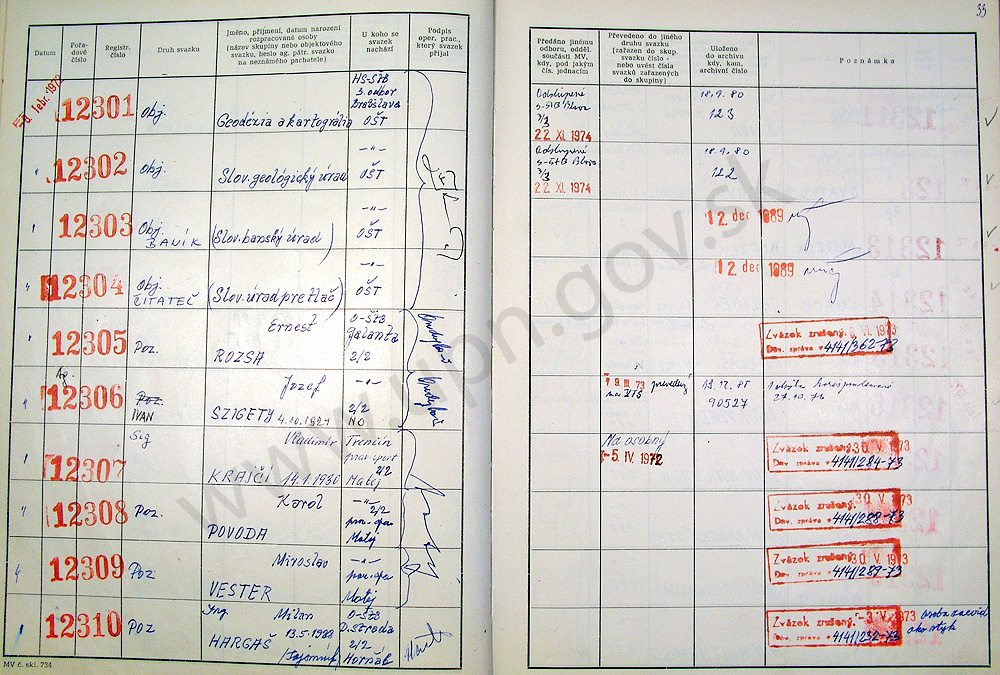 33
Datum
Pořa-
dové
číslo
Registr.
číslo
Druh svazku
Jméno, příjmení, datum narození
rozpracované osoby
(název skupiny nebo objektového
svazku, heslo ag. pátr. svazku
na neznámého pachatele)
U koho se
svazek
nachází
Podpis
oper. prac.,
který svazek
přijal
Předáno jinému
odboru, odděl.
součásti MV,
kdy, pod jakým
čís. jednacím
Převedeno do jiného
druhu svazku
(zařazen do skup.
svazku číslo -
nebo uvést čísla
svazků zařazených
do skupiny)
Uloženo
do archivu
kdy, kam,
archivní číslo
Poznámka
febr. 1972
12301
Obj.
Geodézia a kartografia
HS-ŠtB
3. odbor
Bratislava
OŠT
Odstúpené
3/3
22. XI. 1974
18.9.80
123
12302
Obj.
Slov. geologický úrad
-"-
OŠT
3/3
22. XI. 1974
18.9.80
122
12303
Obj.
BANÍK
(Slov. banský úrad)
-"-
OŠT
12. dec 1989
12304
Obj.
ČITATEĽ
(Slov. úrad pre tlač)
-"-
OŠT
12. dec 1989
12305
Poz.
Ernest
ROZSA
O-ŠtB
Galanta
2/2
Zväzok zrušený.
VI. 1973
Dov. zpráva v 4141/362-73
12306
Ag.
Poz.
IVAN
Jozef
SZIGETY 4.10.1924
-"-
2/2
NO
9. III. 73 prevedený
19.12.85
90527
12307
Sig
Vladimír
KRAJČÍ 14.1.1930
Trenčín
2/2
Matej
Na osobný
-5. IV. 1972
Zväzok zrušený.
30. V. 1973
Dov. zpráva v 4141/284-73
12308
Poz.
Karol
POVODA
-"-
2/2
Matej
Zväzok zrušený.
30. V. 1973
Dov. zpráva v 4141/288-73
12309
Poz
Miroslav
VESTER
-"-
Matej
Zväzok zrušený.
30. V. 1973
Dov. zpráva v 4141/289-73
12310
Poz
Ing. Milan
HARGAŠ
O-ŠtB
D. Streda
2/2
Horňák
Zväzok zrušený.
-3. VI. 1973
Dov. zpráva v 4141/232-73
MV č. skl. 734
www.upn.gov.sk